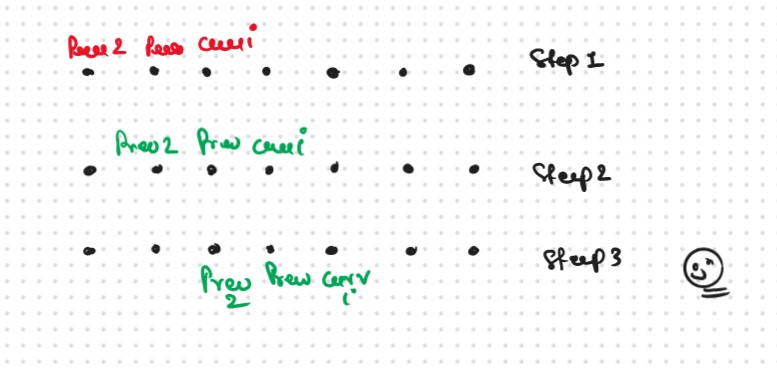 Prev2 Prev curri
Step 1
Prev2 Prev curri
Step 2
Step 3
Prev Prev curr
2 i